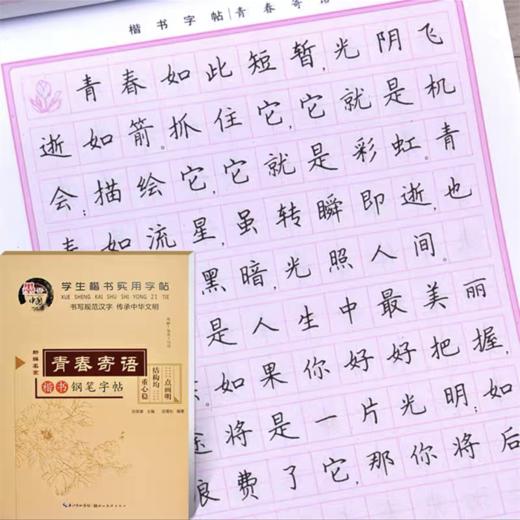 楷书字帖|青春寄语
青春如此短暂,光阴飞
逝如箭。抓住它,它就是机
会;描绘它,它就是彩虹。青
如流星,虽转瞬即逝,也
黑暗,光照人间。
是人生中最美丽
如果你好好把握,
将是一片光明;如
浪费了它,那你将后
学生楷书实用字帖
XUE SHENG KAI SHU SHI YONG ZI TIE
书写规范汉字 传承中华文明
中国
新编名家
青春寄语
楷书
钢笔字帖
重心稳
结构均
点画明